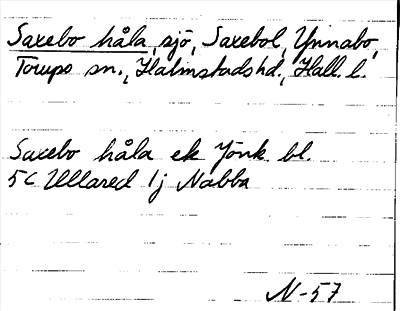 Saxebo håla, sjö, Saxebol, Ynnabo,
Torups sn., Halmstads hd, Hall. l.
Saxebo håla ek Jönk bl.
5c Ullared 1j Nabba
N-57